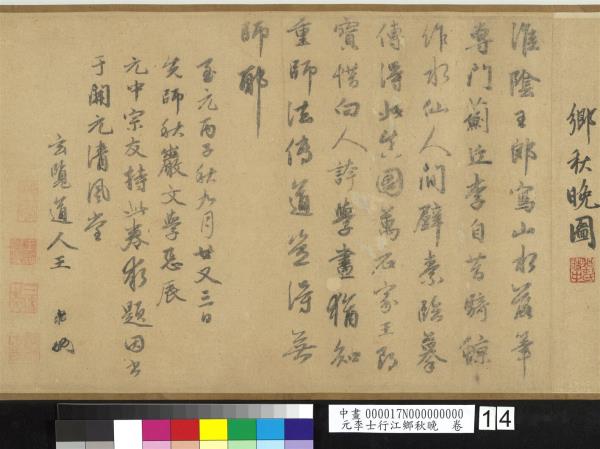 鄉秋晚圖
淮陰王郎寫山水蓋筆
專門薊丘李自昔騎鯨
作水仙人間璧素臨摹
傳得此真圖萬石家王郎
寶惜向人誇學畫猶知
重師法傳道豈得無
師耶
至元丙子秋九月廿又三日
先師秋巖文學忌辰
元中宗友持此卷求題因書
于開元清風堂
玄覽道人王
中畫 000017N000000000
元李士行江鄉秋晚 卷
14